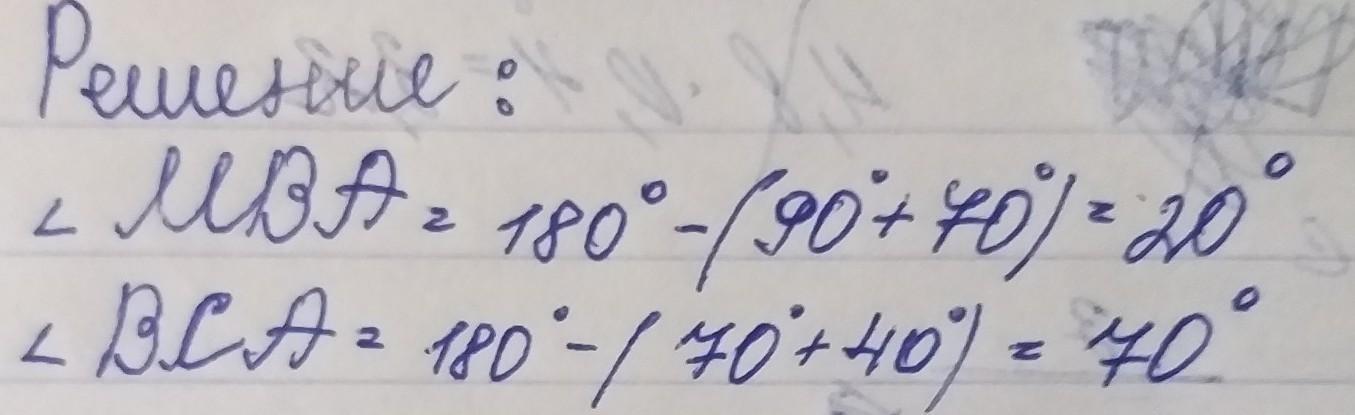 Решение:
∠ MBA = 180° - (90° + 70°) = 20°
∠ BCA = 180° - (70° + 40°) = 70°